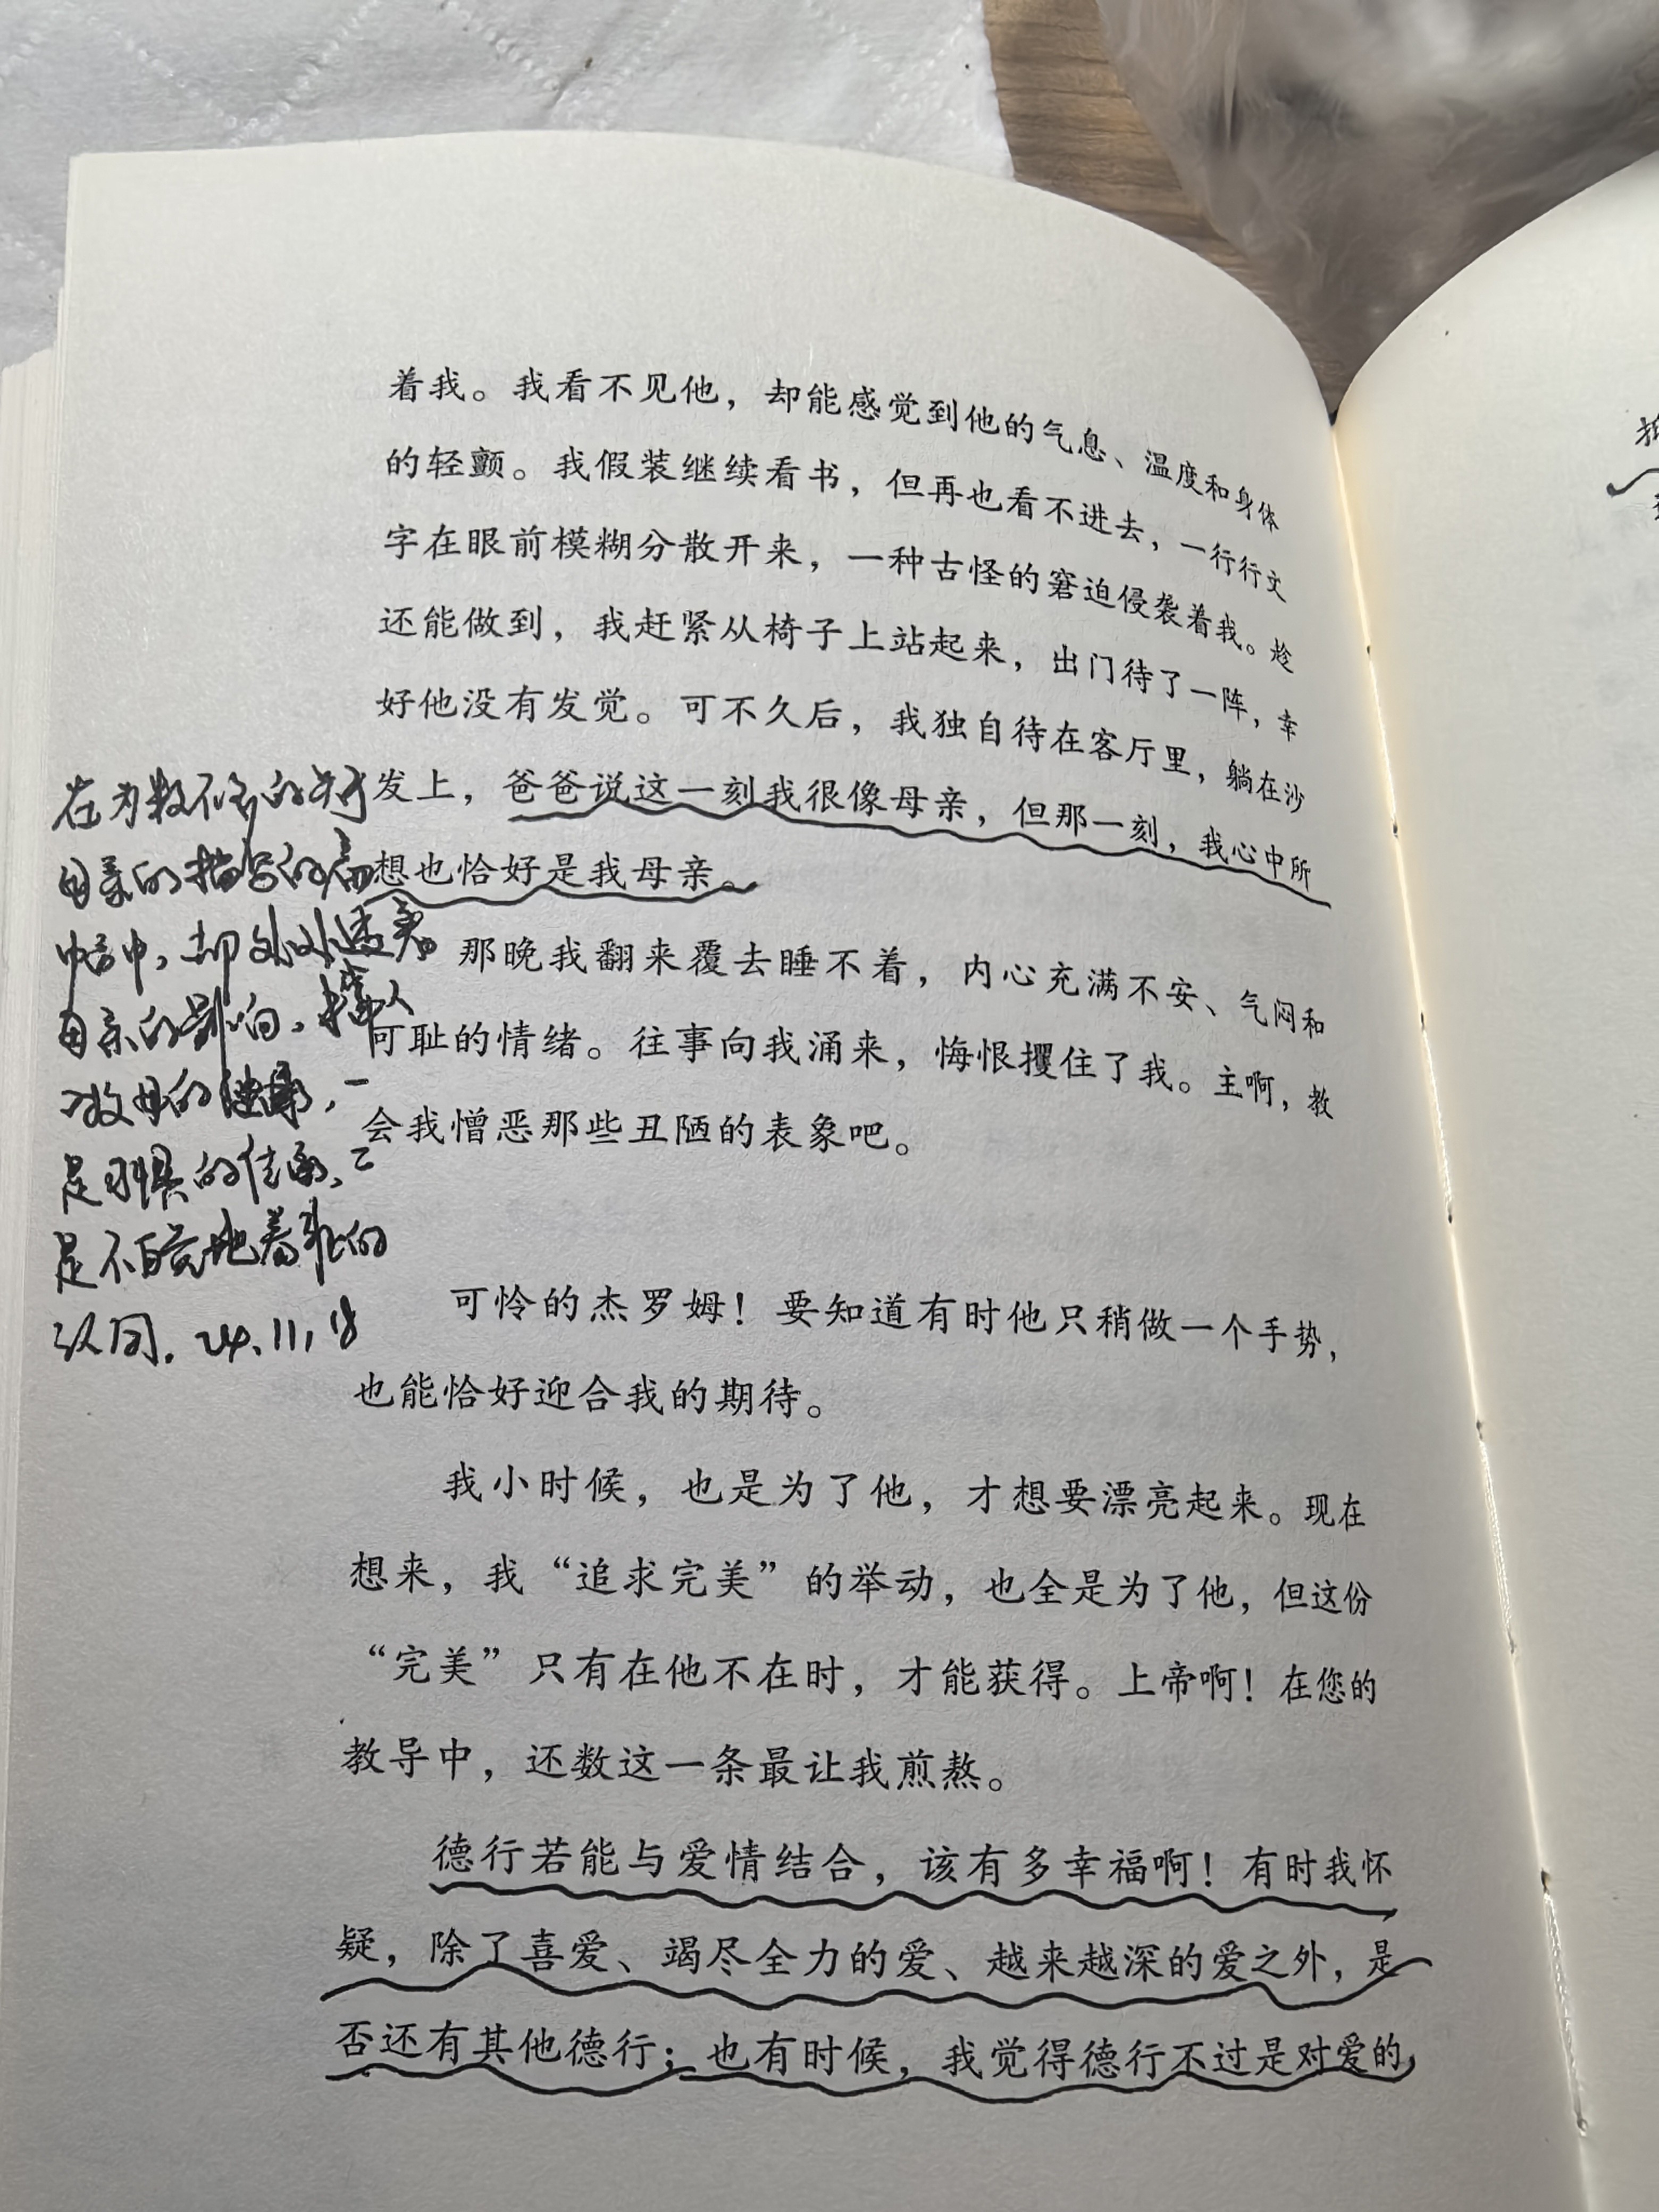 着我。我看不见他，却能感觉到他的气息、温度和身体
的轻颤。我假装继续看书，但再也看不进去，一行行文
字在眼前模糊分散开来，一种古怪的窘迫侵袭着我。趁
还能做到，我赶紧从椅子上站起来，出门待了一阵，幸
好他没有发觉。可不久后，我独自待在客厅里，躺在沙
发上，爸爸说这一刻我很像母亲，但那一刻，我心中所
想也恰好是我母亲。
那晚我翻来覆去睡不着，内心充满不安、气闷和
可耻的情绪。往事向我涌来，悔恨攫住了我。主啊，教
会我憎恶那些丑陋的表象吧。
可怜的杰罗姆！要知道有时他只稍做一个手势，
也能恰好迎合我的期待。
我小时候，也是为了他，才想要漂亮起来。现在
想来，我“追求完美”的举动，也全是为了他，但这份
“完美”只有在他不在时，才能获得。上帝啊！在您的
教导中，还数这一条最让我煎熬。
德行若能与爱情结合，该有多幸福啊！有时我怀
疑，除了喜爱、竭尽全力的爱、越来越深的爱之外，是
否还有其他德行；也有时候，我觉得德行不过是对爱的
在为数不多的关于
母亲的描写的
中，却处处透着
母亲的影响。
一
是 的 二
是不自觉地 的
认同。24.11.18